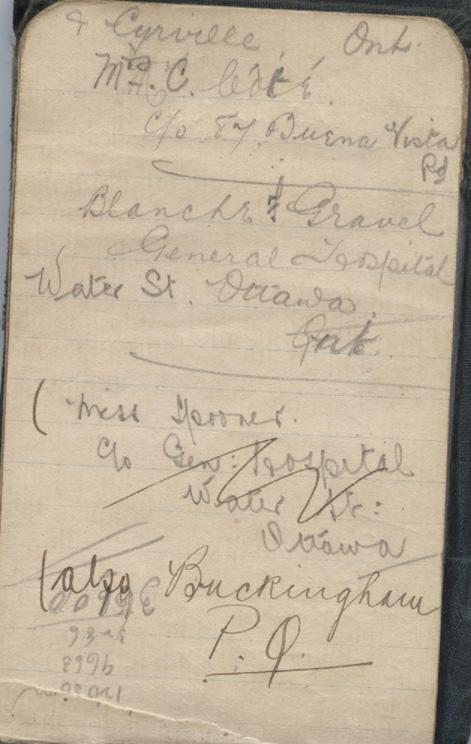 & Cyrville Ont.
Mrs. C. Côté.
c/o 87. Buena Vista
Rd
Blanche Gravel
General Hospital
Water St. Ottawa
Ont.
( Miss Spooner.
c/o Gen: Hospital
Water St:
Ottawa
(also Buckingham
P.Q.